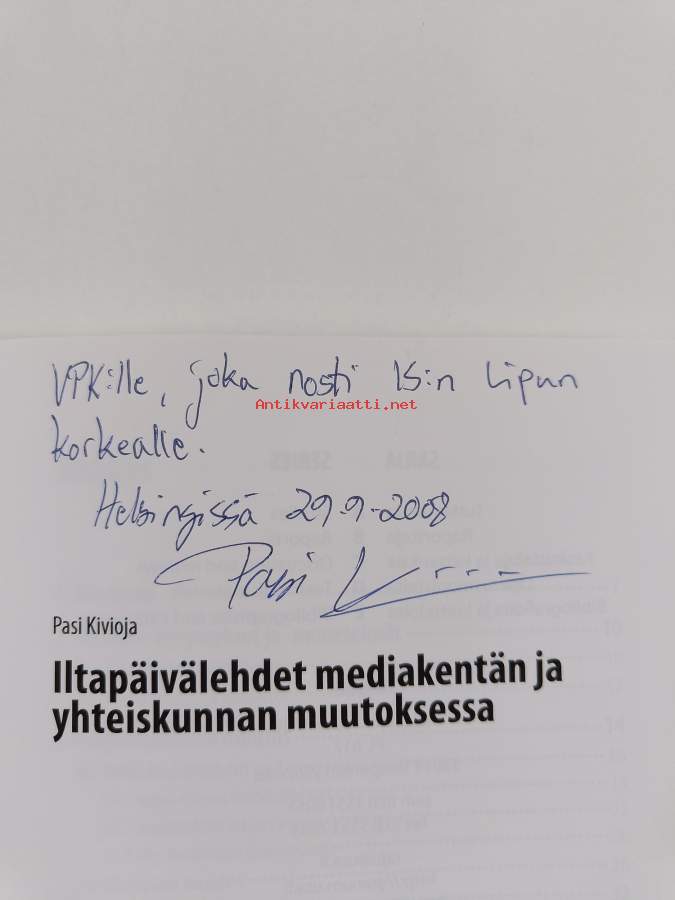 VPK:lle, joka nosti IS:n lipun
Antikvariaatti.net
korkealle.
Helsingissä 29.9.2008
Pasi
Pasi Kivioja
Iltapäivälehdet mediakentän ja
yhteiskunnan muutoksessa